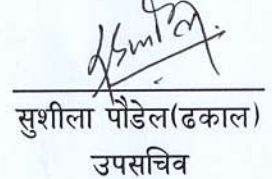 सुशीला पौडेल(ढकाल)
उपसचिव